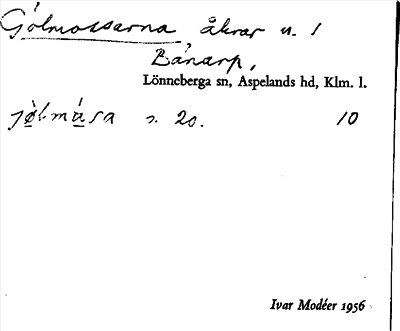 Gölmossarna åkrar u. 1
Bånarp,
Lönneberga sn, Aspelands hd, Klm. l.
jø̀lmása s. 20. 10
Ivar Modéer 1956